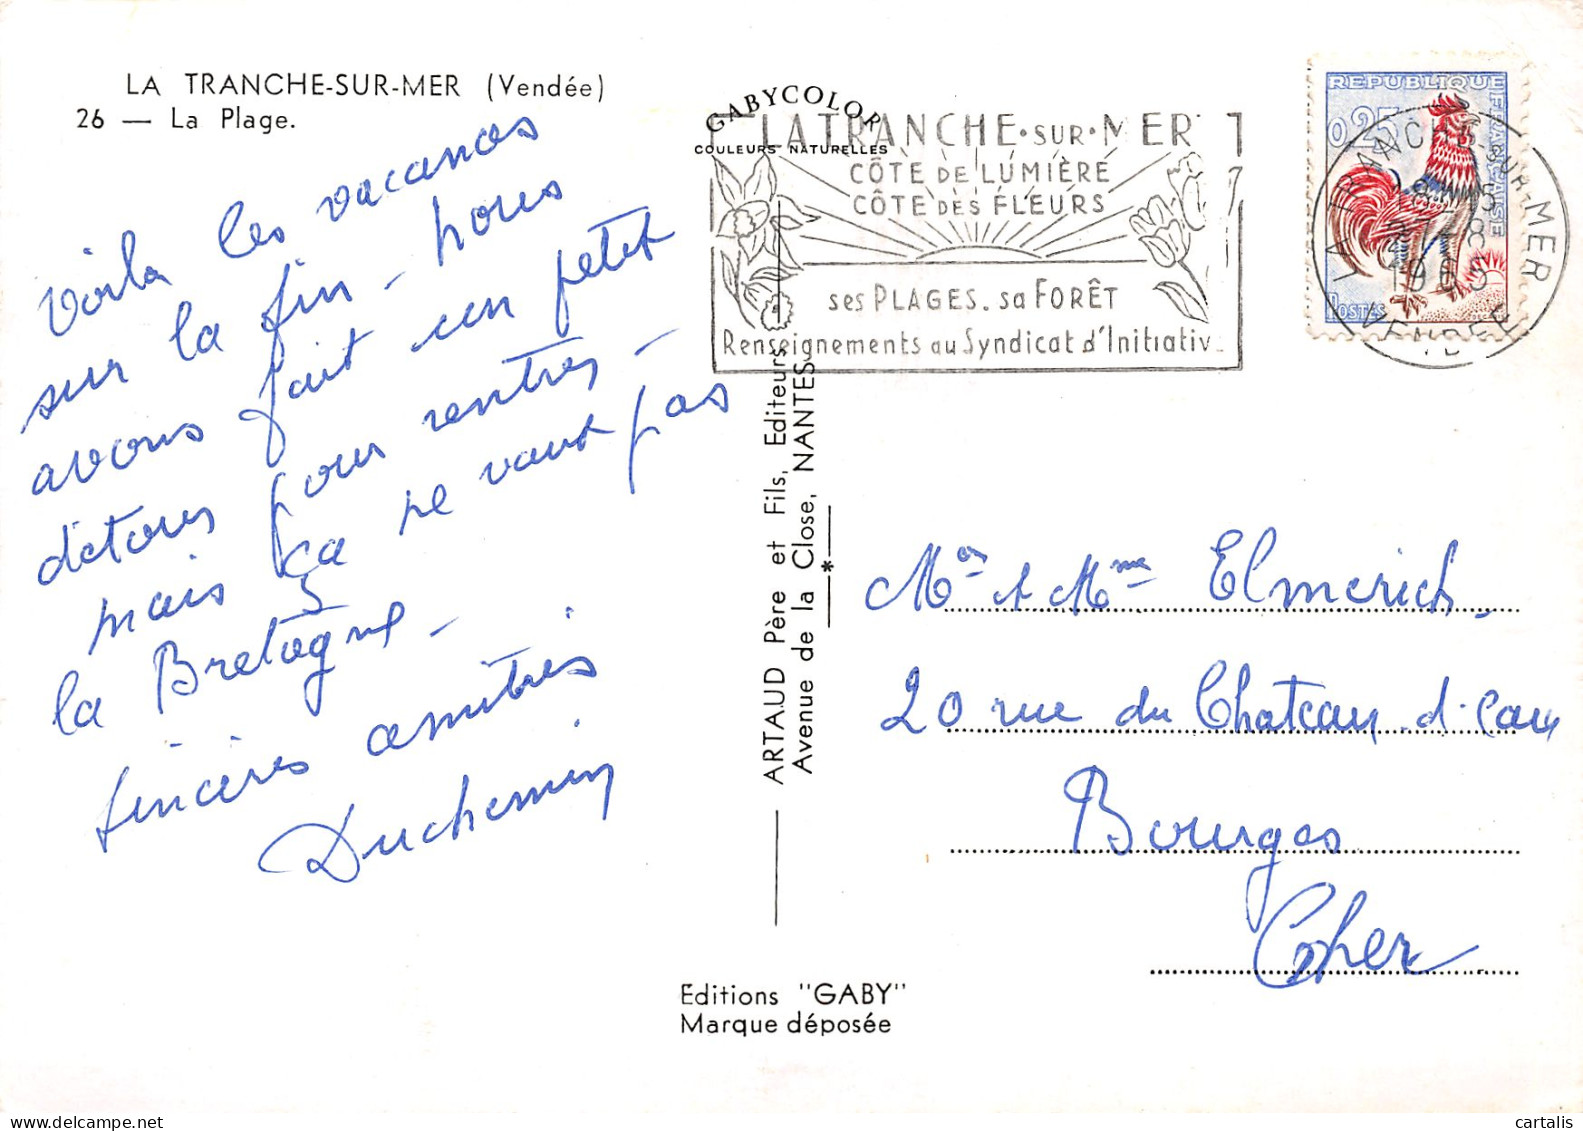 LA TRANCHE-SUR-MER (Vendée)
26 — La Plage.
Voila les vacances
sur la fin – nous
avons fait un petit
détour pour rentrer –
mais ça ne vaut pas
la Bretagne –
sincères amitiés
Duchemin
GABYCOLOR
COULEURS NATURELLES
LA TRANCHE·SUR·MER
CÔTE DE LUMIÈRE
CÔTE DES FLEURS
ses PLAGES. sa FORÊT
Renseignements au Syndicat d'Initiativ
REPUBLIQUE FRANÇAISE
0,25
POSTES
LA TRANCHE-SUR-MER
1965
VENDEE
ARTAUD Père et Fils, Editeurs
Avenue de la Close, NANTES
*
Mr et Mme Elmerich
20 rue du Chateau d'eau
Bourges
Cher
Editions "GABY"
Marque déposée
cartalis